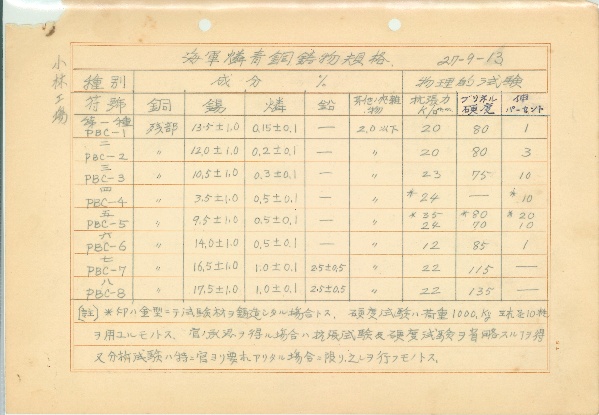 小林工場
海軍燐青銅鋳物規格. 27-9-13
種別 成分 % 物理的試験
符號 銅 錫 燐 鉛 其他ノ夾雑物 抗張力 K/□mm ブリネル硬度 伸パーセント
第一種 PBC-1 残部 13.5±1.0 0.15±0.1 — 2.0以下 20 80 1
二 PBC-2 〃 12.0±1.0 0.2±0.1 — 〃 20 80 3
三 PBC-3 〃 10.5±1.0 0.3±0.1 — 〃 23 75 10
四 PBC-4 〃 3.5±1.0 0.5±0.1 — 〃 *24 — *10
五 PBC-5 〃 9.5±1.0 0.5±0.1 — 〃 *35 24 *80 70 *20 10
六 PBC-6 〃 14.0±1.0 0.5±0.1 — 〃 12 85 1
七 PBC-7 〃 16.5±1.0 1.0±0.1 2.5±0.5 〃 22 115 —
八 PBC-8 〃 17.5±1.0 1.0±0.1 2.5±0.5 〃 22 135 —
註 *印ハ金型ニテ試験材ヲ鋳造シタル場合トス、 硬度試験ハ荷重1000.Kg 球径10粍
ヲ用ユルモノトス、 官ノ承認ヲ得ル場合ハ抗張試験及硬度試験ヲ省略スル了ヲ得
又分析試験ハ特ニ官ヨリ要求アリタル場合ニ限リ之レヲ行フモノトス、